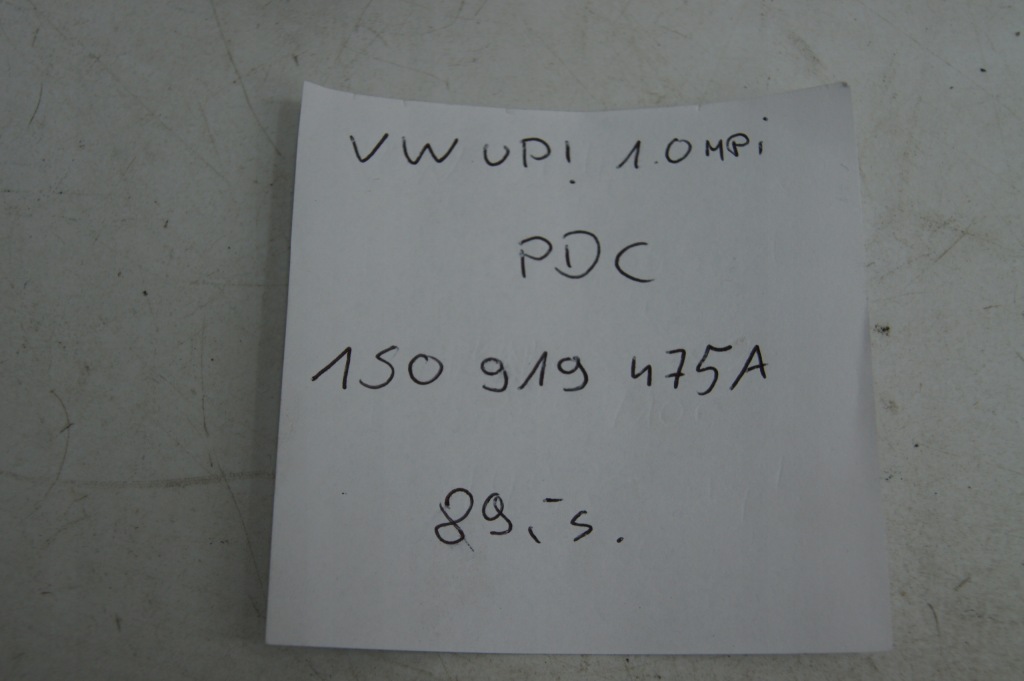 VW UP! 1.0 MPi
PDC
1S0 919 475A
89,- s.